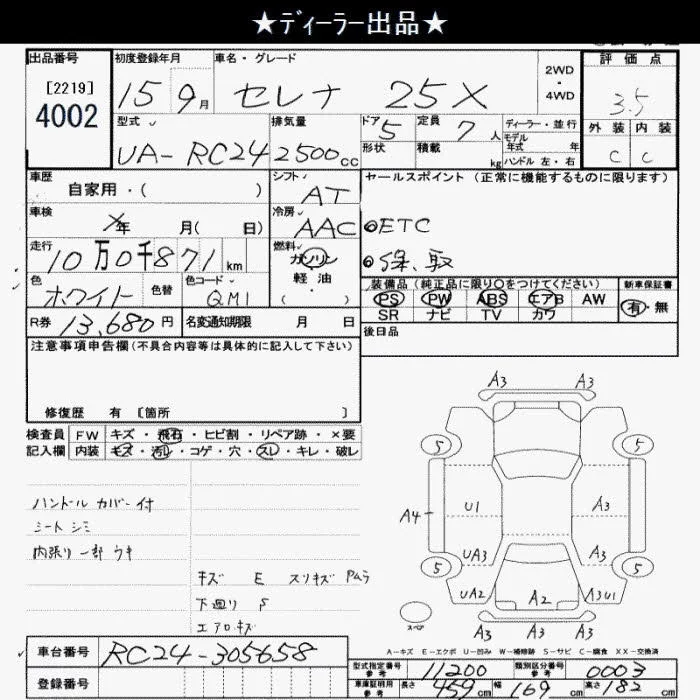 ★ディーラー出品★
出品番号 初度登録年月 車名・グレード 2WD・4WD 評価点
[2219]
4002 15 9月 セレナ 25X 3.5
型式 排気量 ドア 定員 ディーラー・並行 外装 内装
UA-RC24 2500cc 5 7人 モデル年式 年 C C
形状 積載 kg ハンドル 左・右
車歴 シフト セールスポイント (正常に機能するものに限ります)
自家用・( ) AT
車検 冷房
×年 月( 日) AAC ETC
走行 燃料
10万0千871km ガソリン
軽油
( )
色 色替 色コード
ホワイト QM1
装備品 (純正品に限り○をつけてください) 新車保証書
PS PW ABS エアB AW 有・無
SR ナビ TV カワ
R券 13,680円 名変通知期限 月 日
後日品
注意事項申告欄(不具合内容等は具体的に記入して下さい)
修復歴 有 [箇所 ]
検査員 FW キズ・飛石・ヒビ割・リペア跡・×要
記入欄 内装 キズ・汚レ・コゲ・穴・スレ・キレ・破レ
ハンドル カバー付
シート シミ
内張り 一部 ウキ
キズ E スリキズ Pムラ
下廻り S
エアロ キズ
A3 A3
5 5
U1 A3
A4
UA3 A3
5 5
UA2 A2 A3U1
スペア
A3 A3 A3
A-キズ E-エクボ U-凹み W-補修跡 S-サビ C-腐食 XX-交換済
車台番号 RC24-305658
登録番号
型式指定番号 参考 11200 類別区分番号 参考 0003
車庫証明用 参考 長さ 459cm 幅 169cm 高さ 182cm